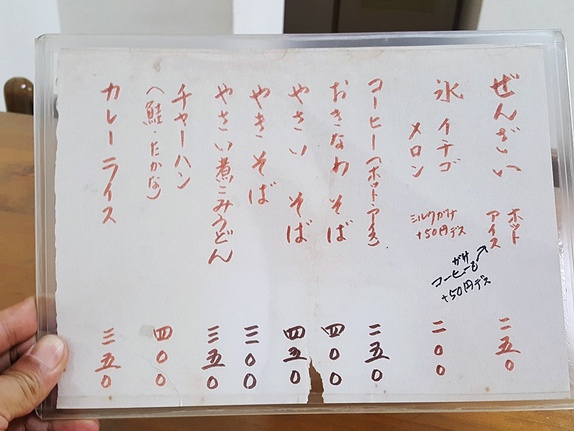 ぜんざい ホット アイス 二五〇
コーヒーも
+50円デス
氷 イチゴ メロン 二〇〇
ミルクがけ
+50円デス
コーヒー(ホット・アイス) 二五〇
おきなわそば 四〇〇
やさいそば 四五〇
やきそば 三〇〇
やさい煮こみうどん 三五〇
チャーハン 四〇〇
(鮭・たかな)
カレーライス 三五〇